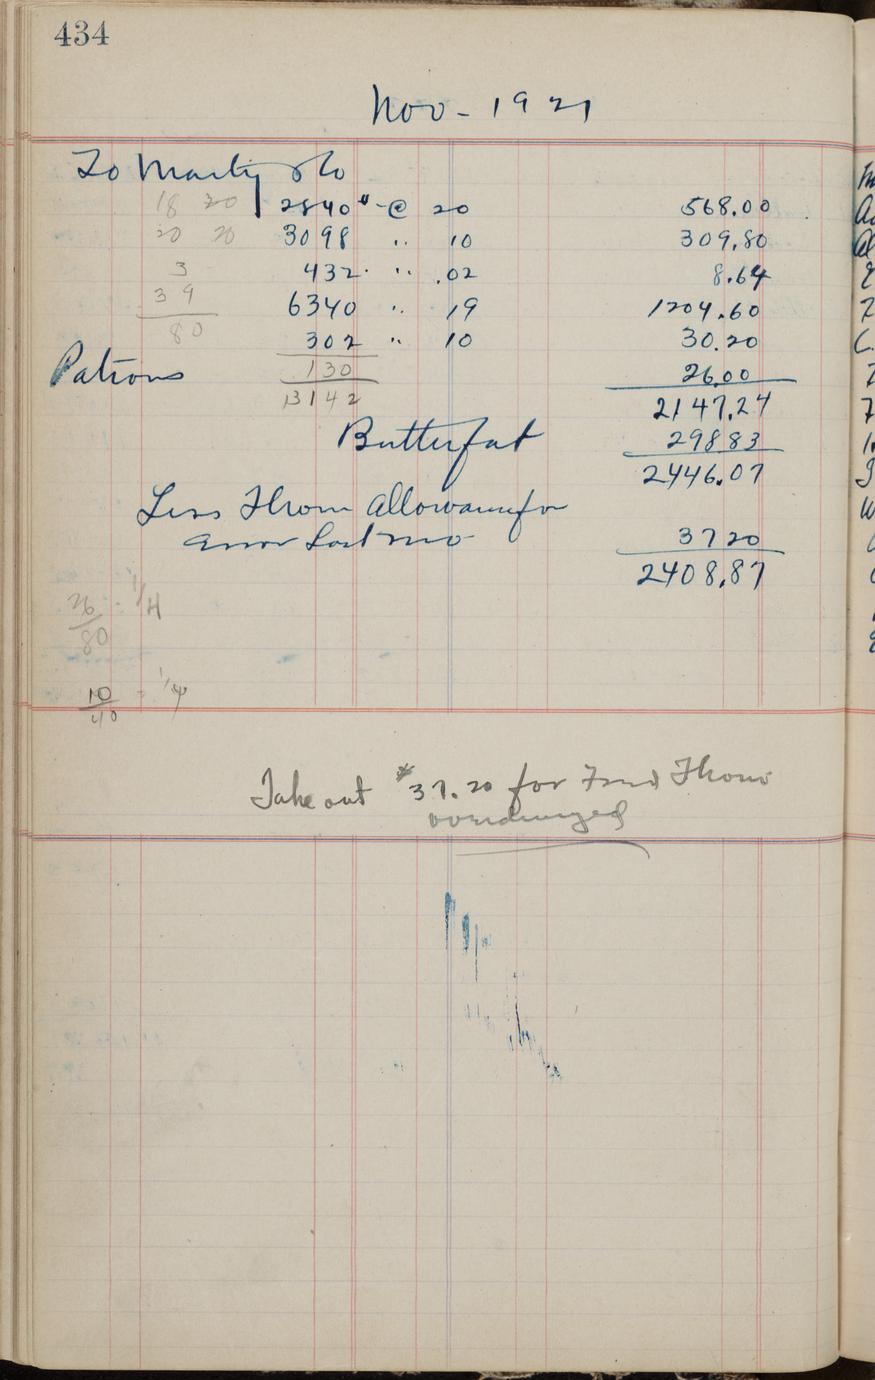 434
Nov - 1921
To Marty & Co
18 20 2840 # - @ 20 568.00
20 20 3098 " 10 309.80
3 432 " .02 8.64
39 6340 " 19 1204.60
80 302 " 10 30.20
Patrons 130 26.00
13142 2147.24
Butterfat 29883
2446.07
Less Thom Allowance for
error Last mo 3720
2408.87
26/80 - 1/4
10/40 - 1/4
Take out $37.20 for Fred Thom
overcharged